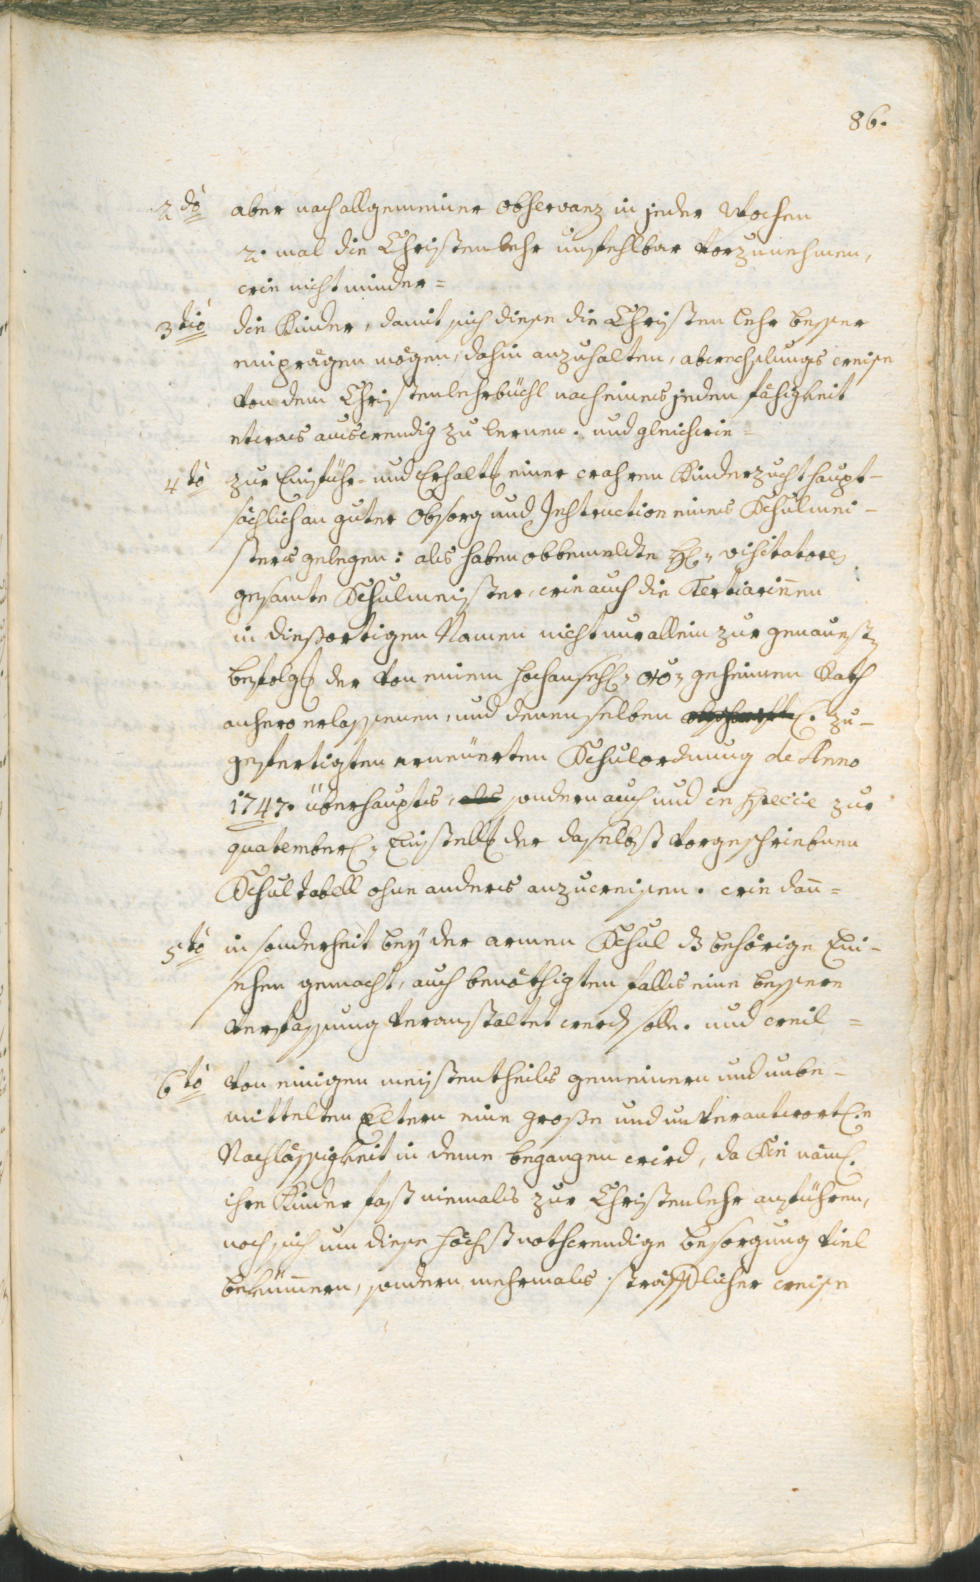 86.
2dò aber nach allgemeiner observanz in jeder Wochen
2. mal die Christenlehr unfehlbar vorzunehmen,
wie nicht minder=
3tiò die Kinder, damit sich diese die Christenlehr besser
einprägen mögen, dahin anzuhalten, abwechslungs weise
von dem Christenlehrbüchl nach eines jeden fähigkeit
etwas auswendig zu lernen. und gleichwie=
4tò zur Einführ- und Erhaltg einer wahren Kinderzucht haupt-
sächlich an guter obsorg und Instruction eines Schulmei-
sters gelegen: als haben obbemeldte H: visitatores
gesamte Schulmeister, wie auch die Tertiarinen
in dießortigen Namen nicht nur allein zur genauest
befolgg der von einem hochansehl: oö: geheimen Rath
anhero erlassenen, und denenselben zu-
gefertigten erneüerten Schulordnung de Anno
1747. überhaupts, als sondern auch und in specie zur
quatemberl: Einstellg der daselbst vorgeschriebnen
Schultabell ohne anders anzuweisen. wie dan=
5tò in sonderheit bey der armen Schul dz behörige Ein-
sehen gemacht, auch benöthigten falls eine bessere
verfassung veranstaltet werdn solle. und weil=
6tò von einigen meistentheils gemeinern und unbe-
mittelten Eltern eine große und unverantwortl:e
Nachlässigkeit in deme begangen wird, da Sie näml:
ihre Kinder fast niemals zur Christenlehr anführen,
noch sich um diese höchst nothwendige besorgung viel
bekümmern, sondern mehrmals sträfflicher weise